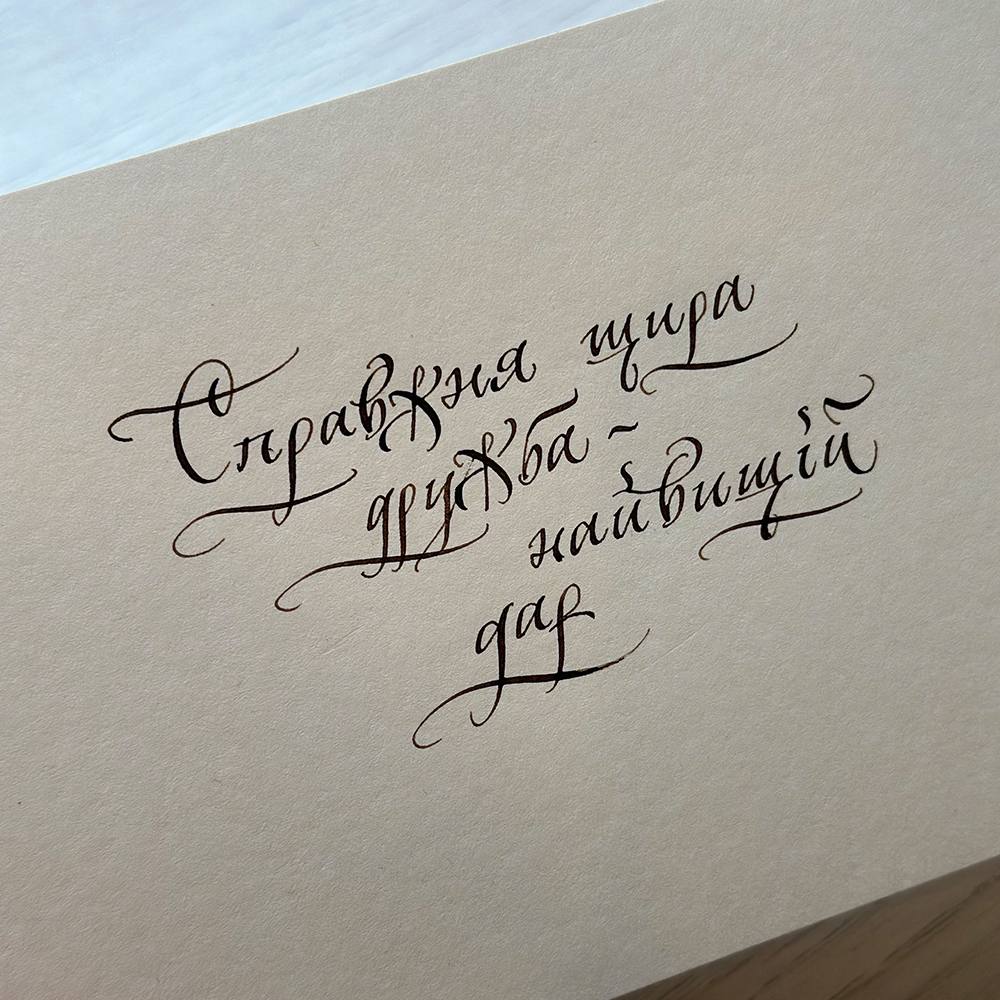 Справжня щира
дружба –
найвищій
дар